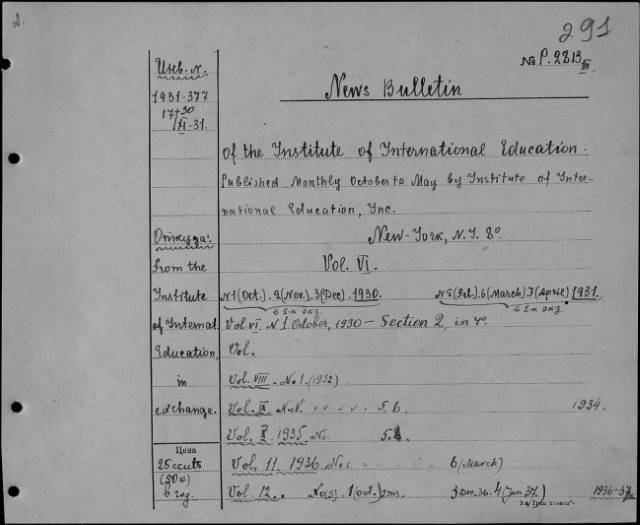 2.
291
№ P.2813 III
Инв. №
News Bulletin
1931-377
17 + 30
XI-31.
of the Institute of International Education.
Published Monthly October to May by Institute of Inter-
national Education, Inc.
Откуда:
New-York, N.Y. 8°
From the
Vol. VI.
Institute
N 1 (Oct.). 2 (Nov.), 3 (Dec). 1930.
N 5 (Feb.). 6 (March) 7 (April) 1931.
в 2-х экз.
в 2-х экз.
of Internat.
Vol. VI. N 1. October, 1930 — Section 2, in 4°.
Education,
Vol.
in
Vol. VIII. No. 1. (1932)
exchange.
Vol. IX. N.N. 5. 6. 1934.
Vol. X 1935 No. 5.
Цена
25 cents
Vol. 11. 1936. Nos 6 (March)
(50к)
в год.
Vol. 12. No(s). 1 (Oct.) 2 экз. 3 Dec. 36. 4 (Jan 37.) 1936-37